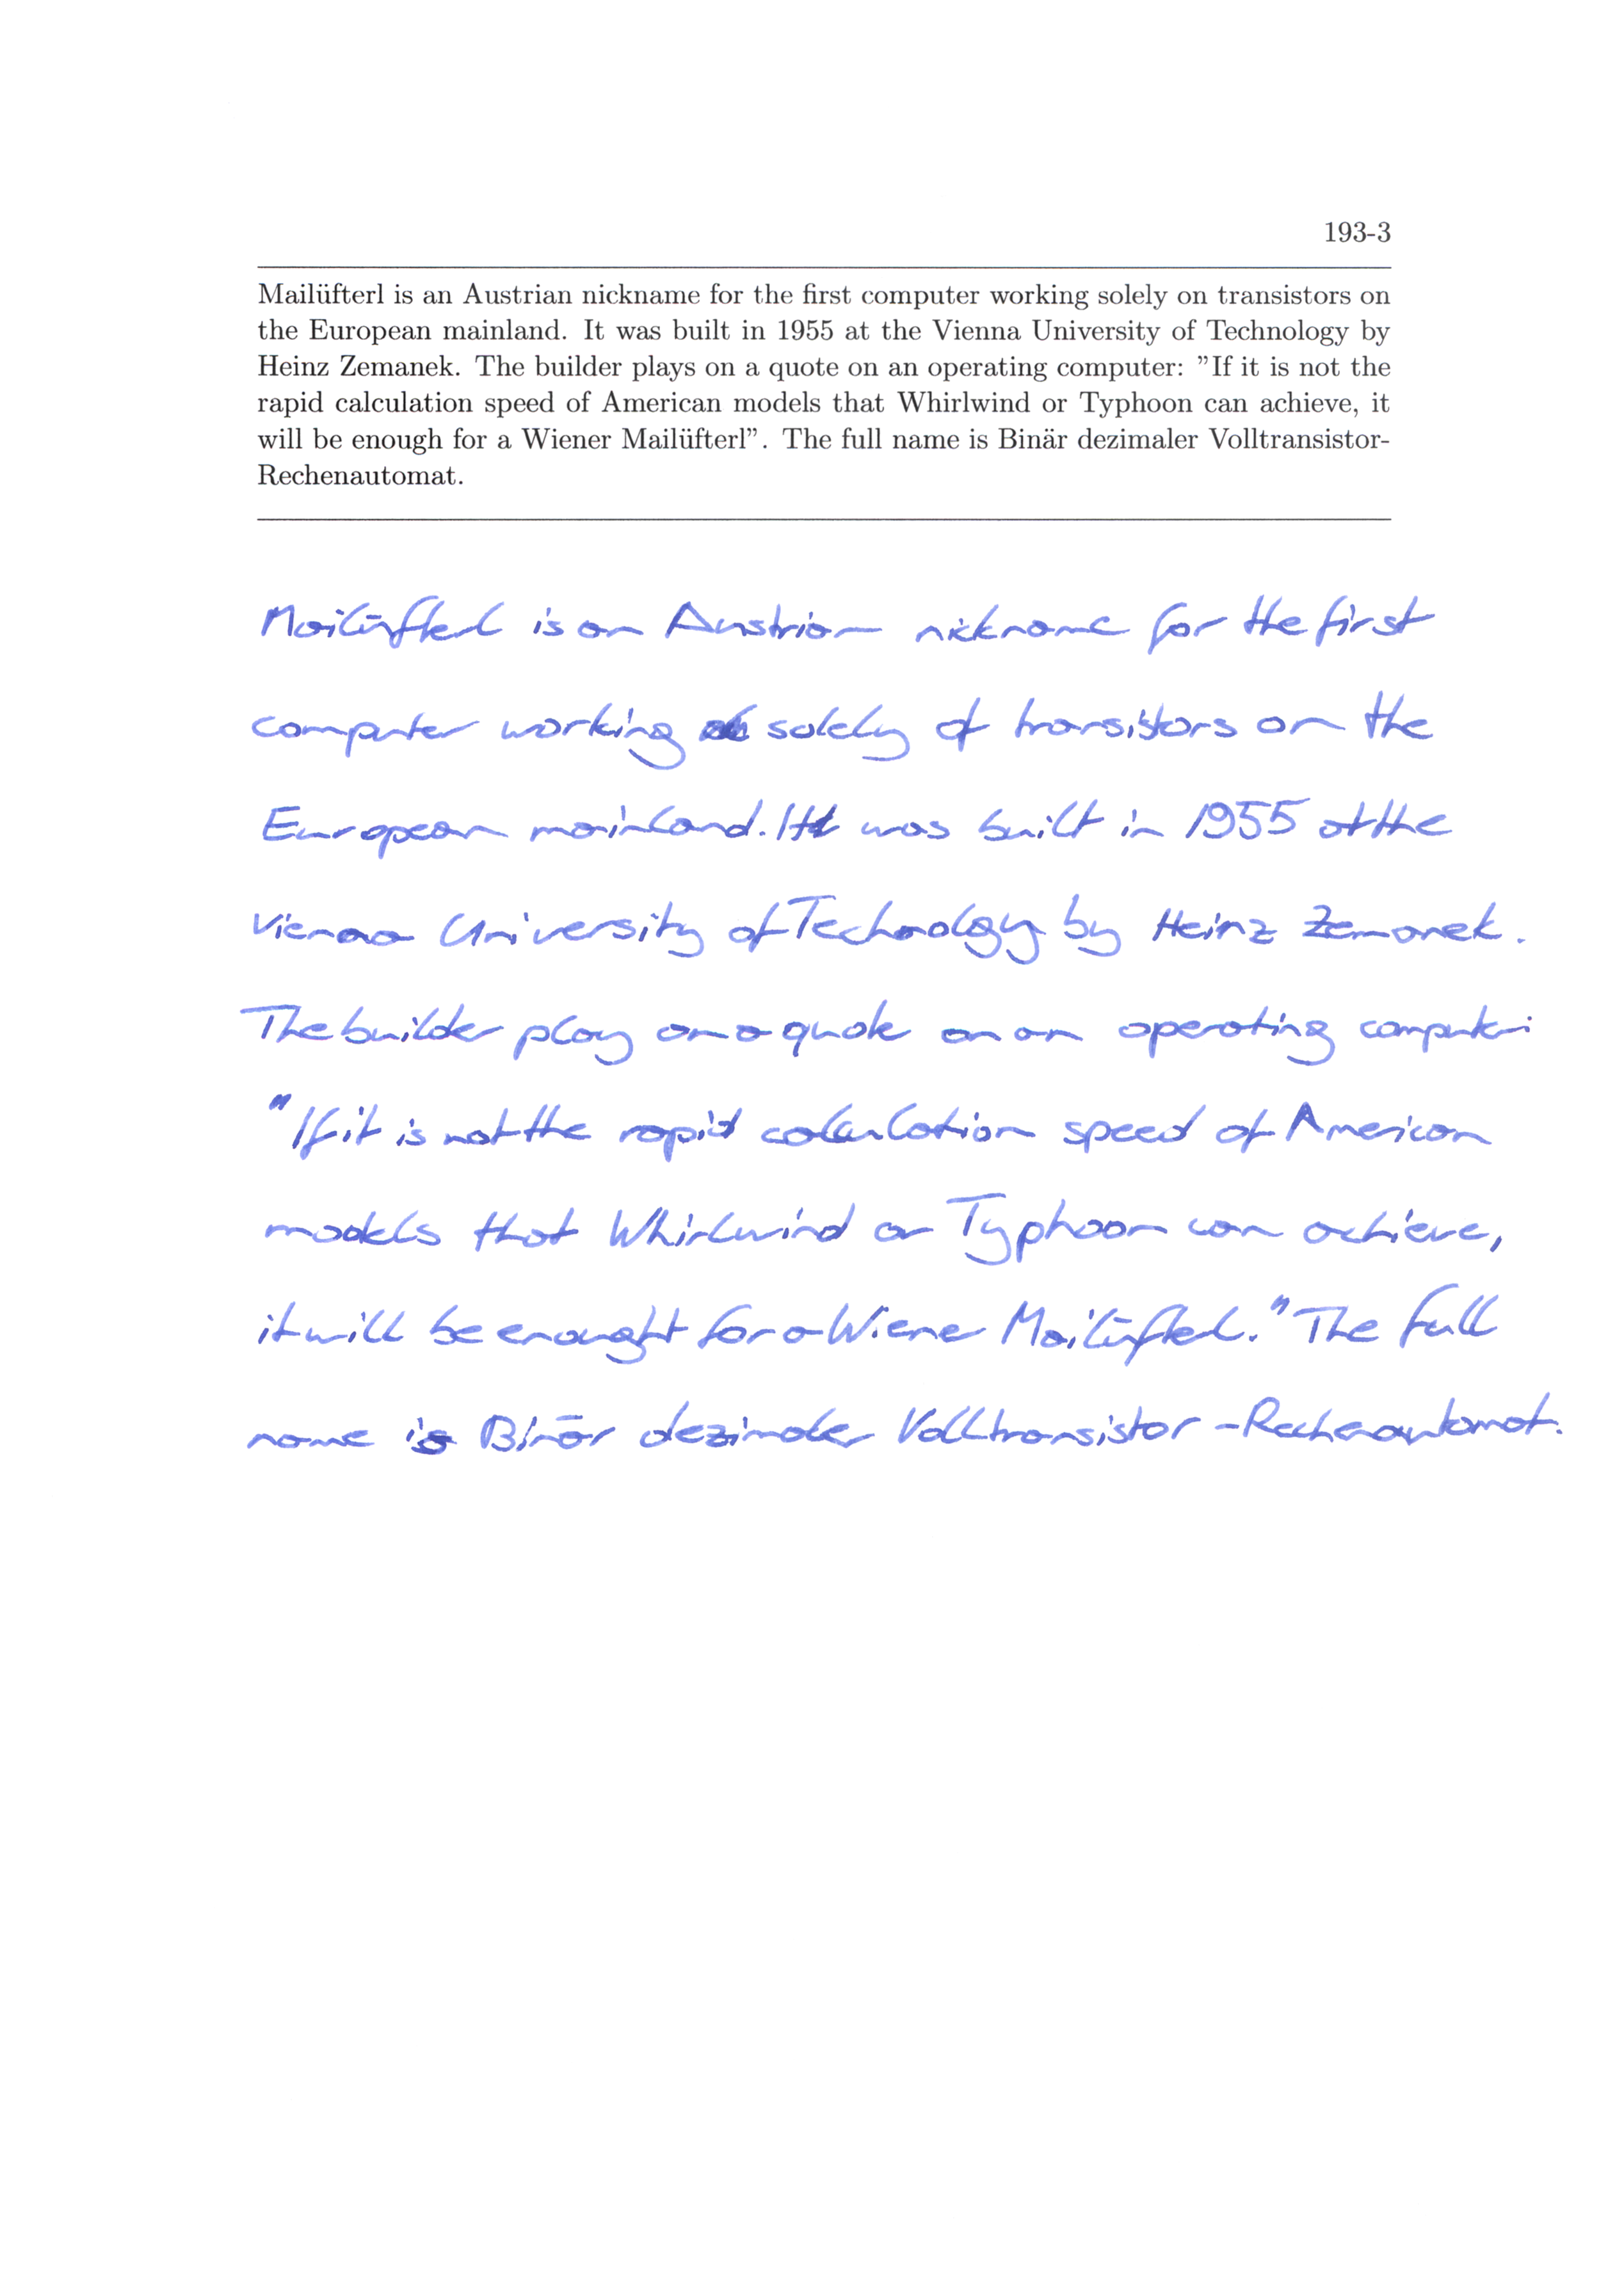 193-3
Mailüfterl is an Austrian nickname for the first computer working solely on transistors on
the European mainland. It was built in 1955 at the Vienna University of Technology by
Heinz Zemanek. The builder plays on a quote on an operating computer: "If it is not the
rapid calculation speed of American models that Whirlwind or Typhoon can achieve, it
will be enough for a Wiener Mailüfterl". The full name is Binär dezimaler Volltransistor-
Rechenautomat.
Mailüfterl is an Austrian nickname for the first
computer working solely of transistors on the
European mainland. It was built in 1955 at the
Vienna University of Technology by Heinz Zemanek.
The builder play on a quote on an operating computer:
"If it is not the rapid calculation speed of American
models that Whirlwind or Typhoon can achieve,
it will be enought for a Wiener Mailüfterl." The full
name is Binär dezimaler Volltransistor-Rechenautomat.